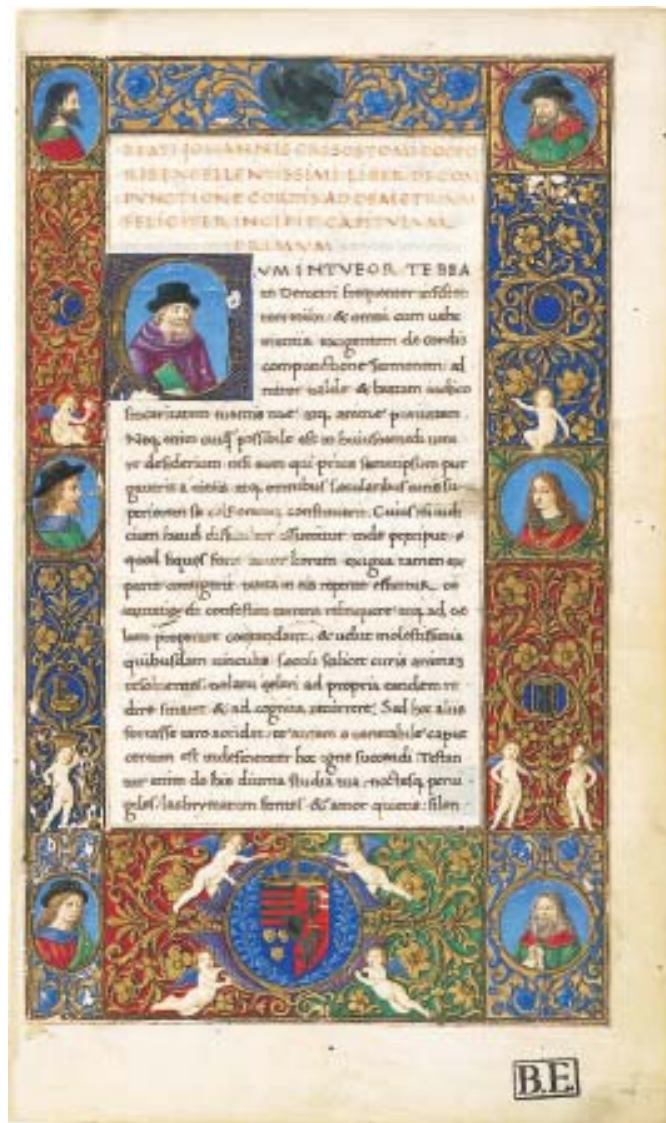 BEATI JOHANNIS CRISOSTOMI DOCTO
RIS EXCELLENTISSIMI LIBER DE COM
PVNCTIONE CORDIS AD DEMETRIVM
FELICITER INCIPIT CAPITVLVM
PRIMVM
VM INTVEOR TE BEA
te Demetri frequenter
mihi & omni cum uehe
mentia exigentem de cordis
compunctione sermonem ad
miror ualde & beatam iudico
sinceritatem mentis tue atq. anime puritatem.
Neq. enim possibile est in huiusmodi
desiderium nisi eum qui prius semetipsum pur
gauerit a uitiis atq. omnibus secularibus curis su
periorem se constituerit. Cuius rei indi
cium haud inde precipue
quod siquos horum exigua tamen ex
parte contigerit tanta in eis repente efficitur
de confestim terrena relinquere atq. ad ce
lum properare & uelut molestissimis
quibusdam uinculis seculi scilicet curis animas
resoluentes celari ad propria tandem re
dire sinant & ad cognita recurrere. Sed hoc aliis
fortasse raro accidat te autem o uenerabile caput
certum est indesinenter hoc igne succendi. Testan
tur enim de his diurna studia tua noctesq. perui
giles lachrymarum fontes & amor quietis silen
B.E.